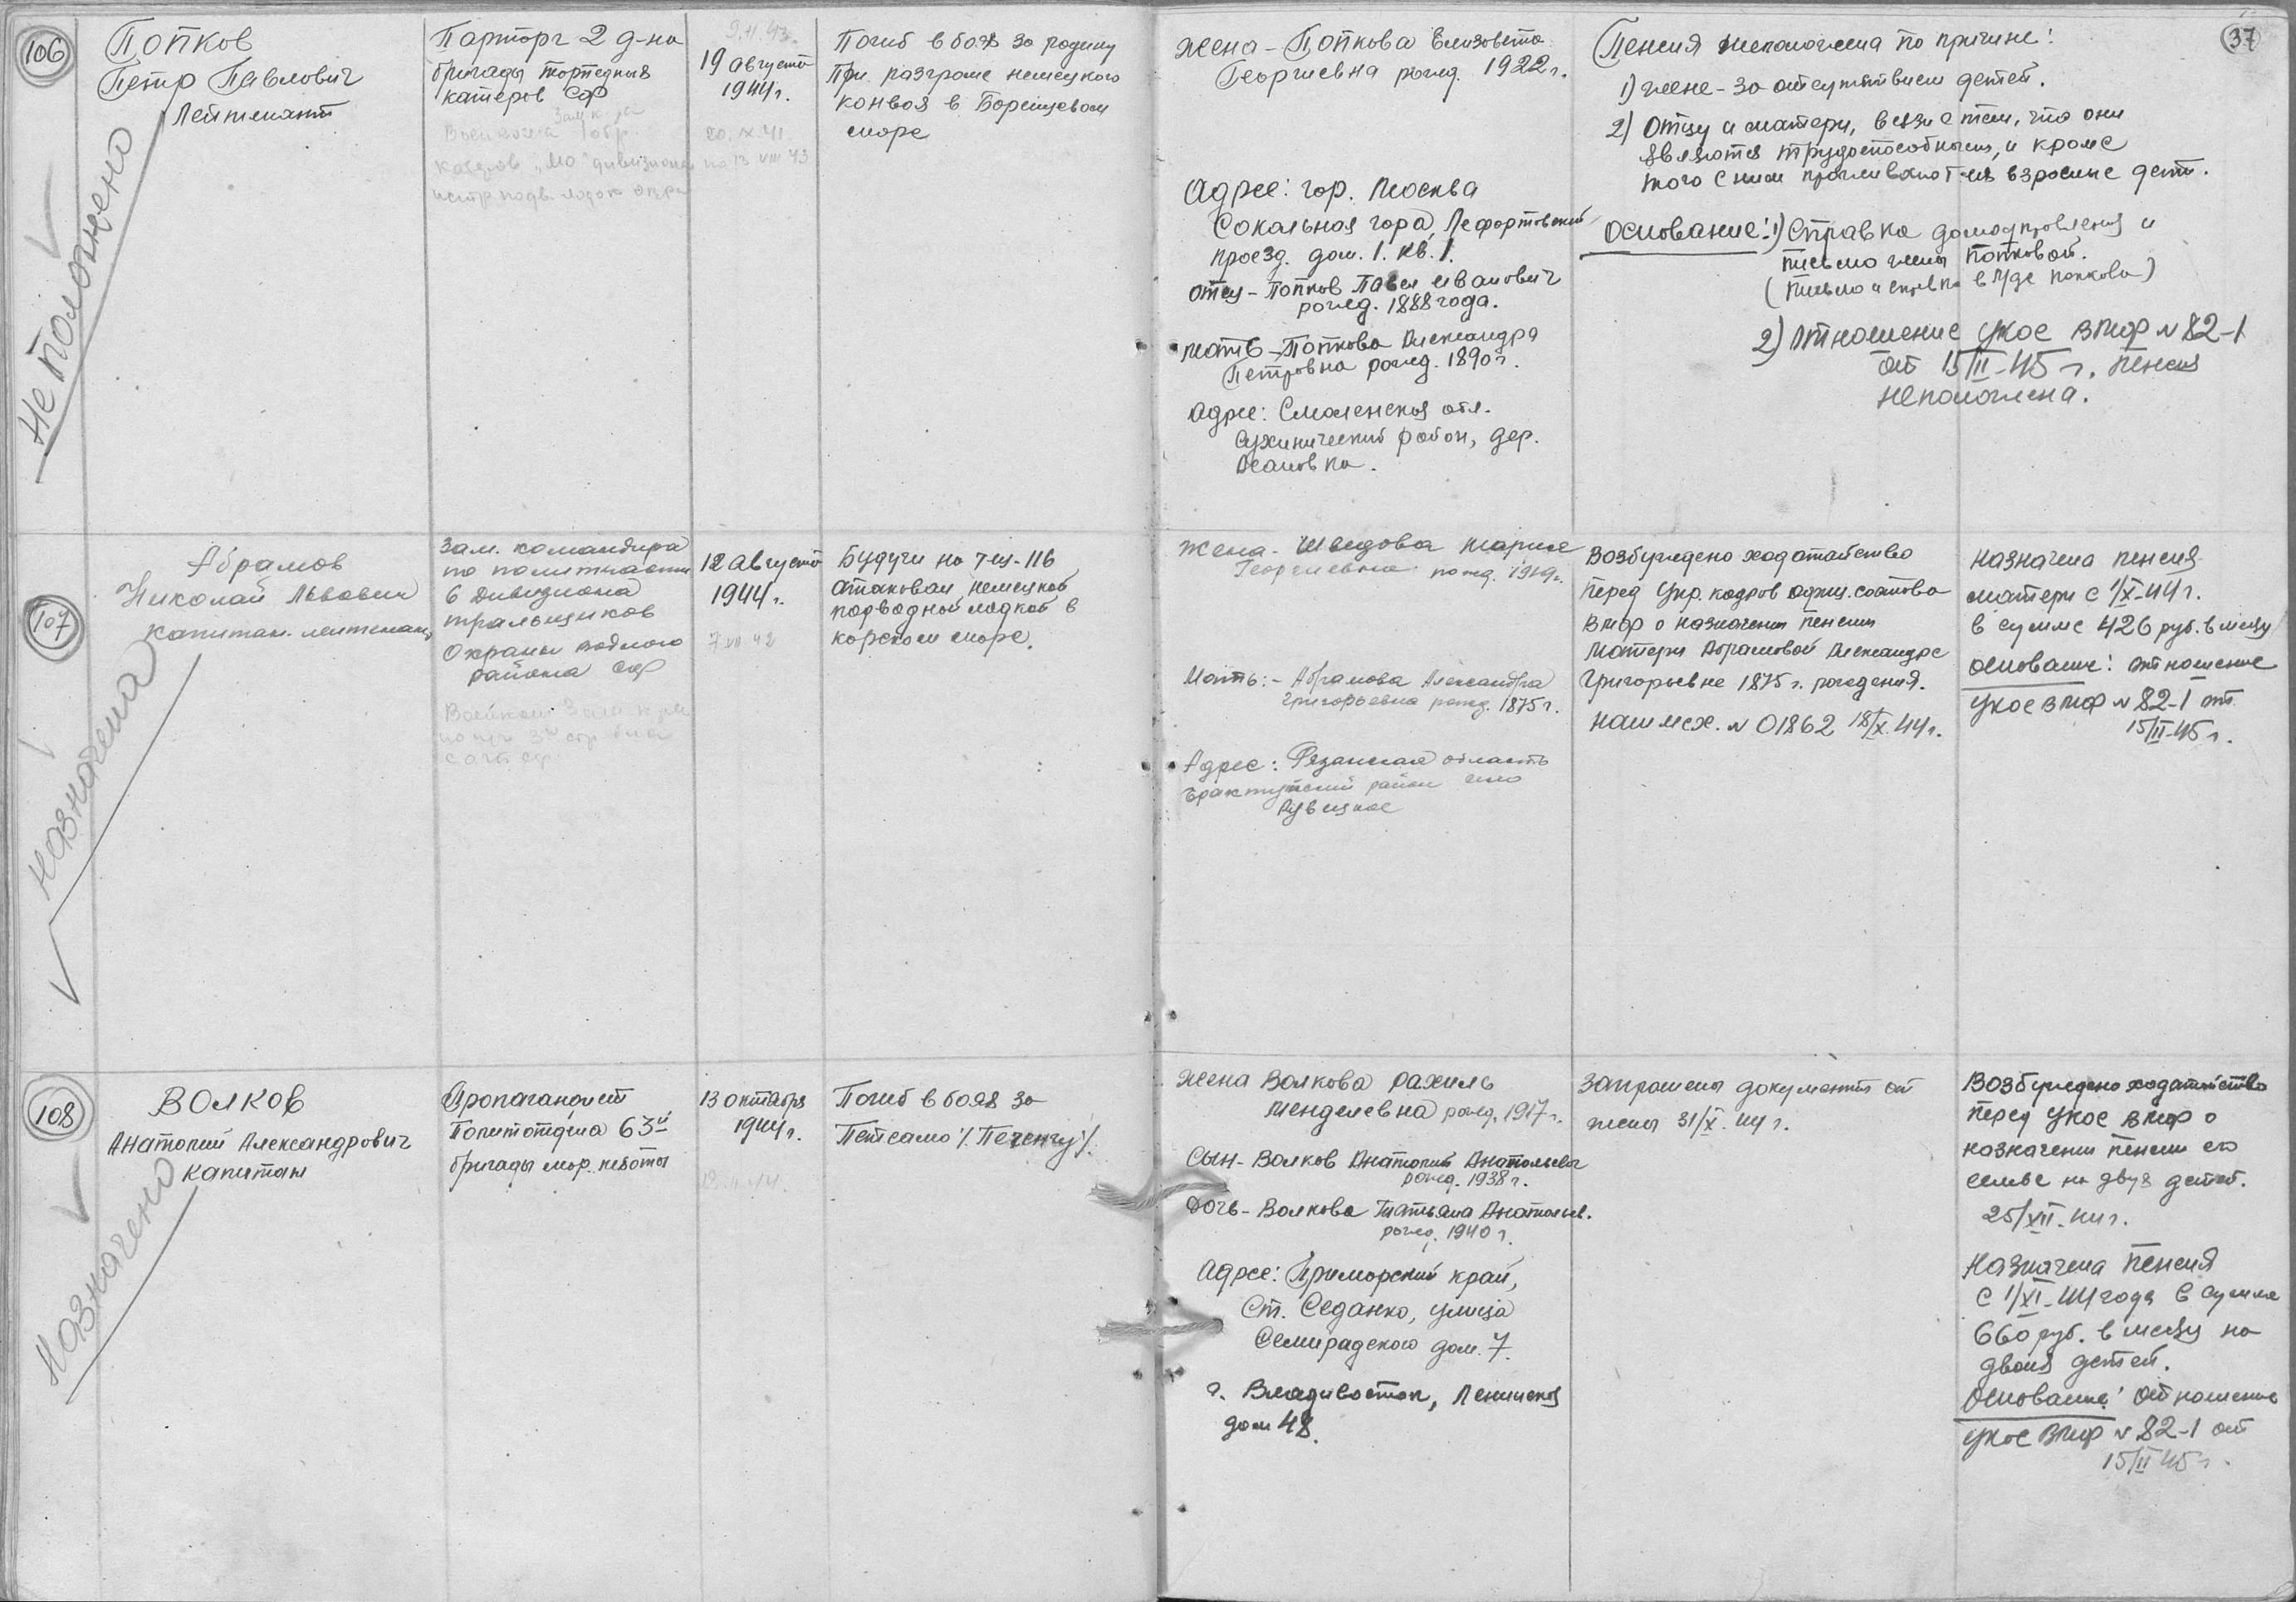 37
106
Попков
Петр Павлович
Лейтенант
Не положено
Парторг 2 д-на
бригады торпедных
катеров СФ
9.II.43.
19 августа
1944 г.
20.IX.41.
по 13 VIII 43
Погиб в боях за родину
При разгроме немецкого
конвоя в Боренцевом
море
жена - Попкова Елизовета
Георгиевна рожд. 1922 г.
Адрес: гор. Москва
Соколиная гора, Лефортовский
проезд. дом. 1. кв. 1.
отец - Попков Павел Иванович
рожд. 1888 года.
мать - Попкова Александра
Петровна рожд. 1890 г.
Адрес: Смоленская обл.
Сухинический район, дер.
Пенсия неположена по причине:
1) жене - за отсутствием детей.
2) Отцу и матери, в связи с тем, что они
являются трудоспособными, и кроме
того с ним проживают их взрослые дети.
Основание: 1) Справка домоуправления и
письмо жены Попковой.
(письмо и справка в л/де Попкова)
2) Отношение УКОС ВМФ № 82-1
от 15/II-45 г. пенсия
неположена.
107
Абрамов
Николай Львович
капитан. лейтенант
Назначена
Зам. командира
по политчасти
6 Дивизиона
тральщиков
Охраны водного
района СФ
12 августа
1944 г.
7 VII 42
Будучи на тщ-116
атакован немецкой
подводной лодкой в
корском море.
жена - Шведова Мария
Георгиевна рожд. 1919 г.
Мать: - Абрамова Александра
Григорьевна рожд. 1875 г.
Адрес: Рязанская область
район село
Возбуждено ходатайство
перед Упр. кадров офиц. состава
ВМФ о назначении пенсии
матери Абрамовой Александре
Григорьевне 1875 г. рождения.
наш исх. № 01862 18/X.44 г.
Назначена пенсия
матери с 1/X-44 г.
в сумме 426 руб. в месяц
основание: отношение
УКОС ВМФ № 82-1 от
15/II-45 г.
108
Волков
Анатолий Александрович
капитан
Назначено
Пропагандист
Политотдела 63й
бригады мор. пехоты
13 октября
1944 г.
Погиб в боях за
Петсамо /. Печенгу /.
жена Волкова Рахиль
Менделевна рожд. 1917 г.
Сын - Волков Анатолий Анатольевич
рожд. 1938 г.
Дочь - Волкова Татьяна Анатольев.
рожд. 1940 г.
Адрес: Приморский край,
Ст. Седанка, улица
Семирадского дом. 7.
г. Владивосток, Ленинская
дом 48.
Запрошены документы от
жены 31/X. 44 г.
Возбуждено ходатайство
перед УКОС ВМФ о
назначении пенсии его
семье на двух детей.
25/XII. 44 г.
Назначена пенсия
с 1/XI-44 года в сумме
660 руб. в месяц на
двоих детей.
Основание: отношение
УКОС ВМФ № 82-1 от
15/II 45 г.